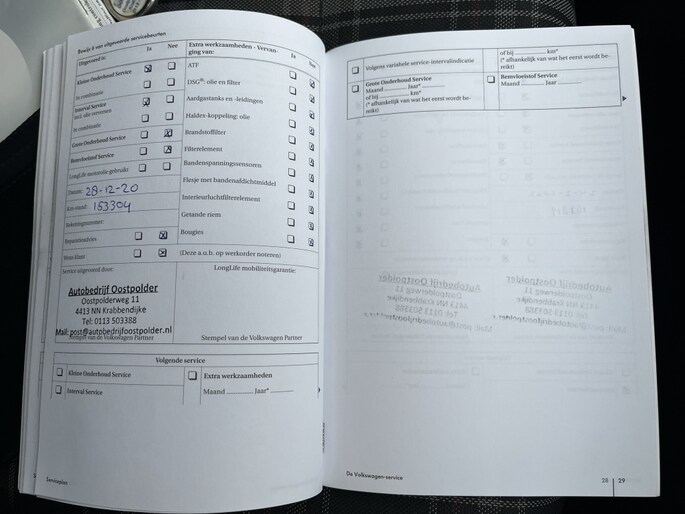 Bewijs 8 van uitgevoerde servicebeurten
Uitgevoerd is: Ja Nee
Kleine Onderhoud Service
In combinatie
Interval Service
incl. olie verversen
In combinatie
Grote Onderhoud Service
Remvloeistof Service
LongLife motorolie gebruikt
Datum: 28-12-20
Km-stand: 153304
Rekeningnummer:
Reparatieadvies
Wens klant
Extra werkzaamheden - Vervanging van: Ja Nee
ATF
DSG®: olie en filter
Aardgastanks en -leidingen
Haldex-koppeling: olie
Brandstoffilter
Filterelement
Bandenspanningssensoren
Flesje met bandenafdichtmiddel
Interieurluchtfilterelement
Getande riem
Bougies
(Deze a.u.b. op werkorder noteren)
Service uitgevoerd door:
Autobedrijf Oostpolder
Oostpolderweg 11
4413 NN Krabbendijke
Tel: 0113 503388
Mail: post@autobedrijfoostpolder.nl
Stempel van de Volkswagen Partner
LongLife mobiliteitsgarantie:
Stempel van de Volkswagen Partner
Volgende service
Kleine Onderhoud Service
Interval Service
Extra werkzaamheden
Maand ............ Jaar* ............
Serviceplan
Volgens variabele service-intervalindicatie
of bij ............ km*
(* afhankelijk van wat het eerst wordt bereikt)
Grote Onderhoud Service
Maand ............ Jaar* ............
of bij ............ km*
(* afhankelijk van wat het eerst wordt bereikt)
Remvloeistof Service
Maand ............ Jaar ............
De Volkswagen-service
28 29